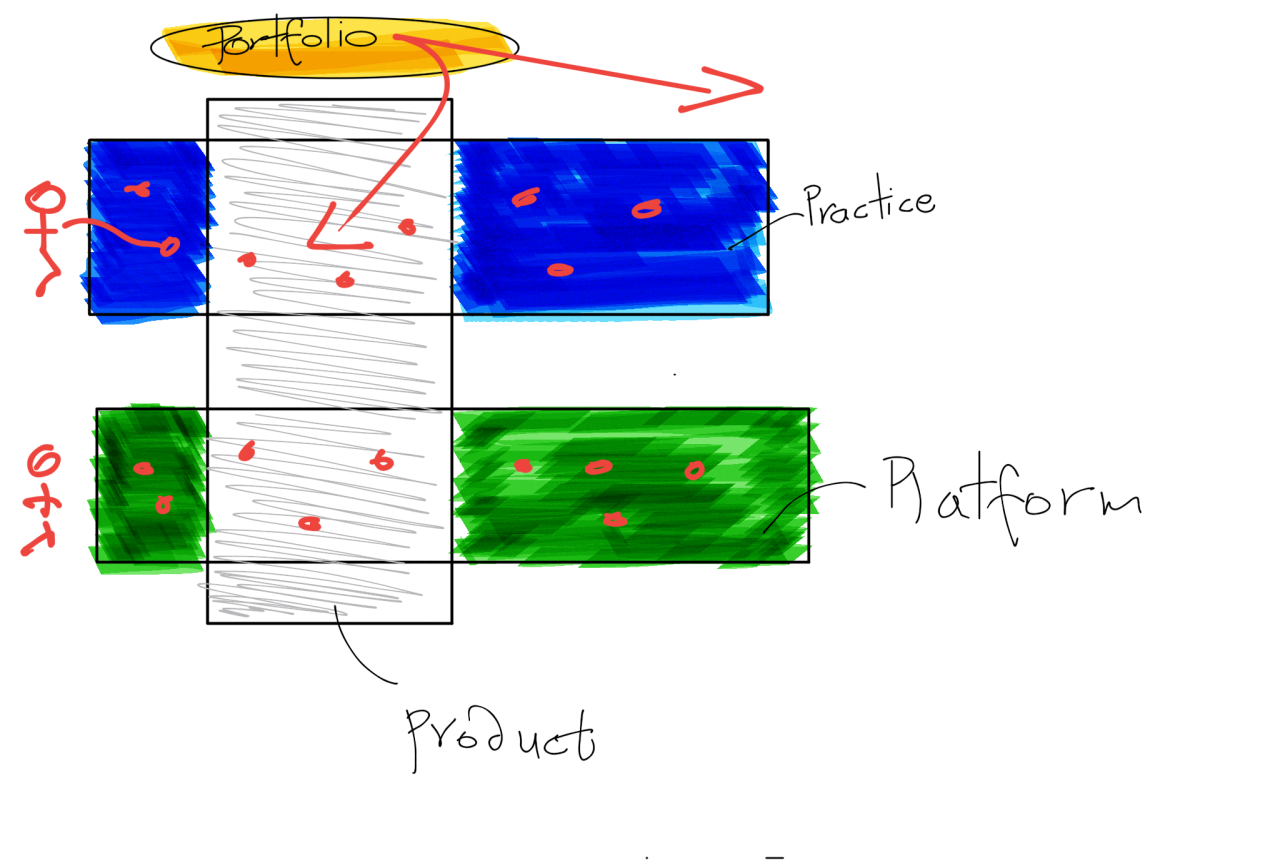 Portfolio
Practice
Platform
Product